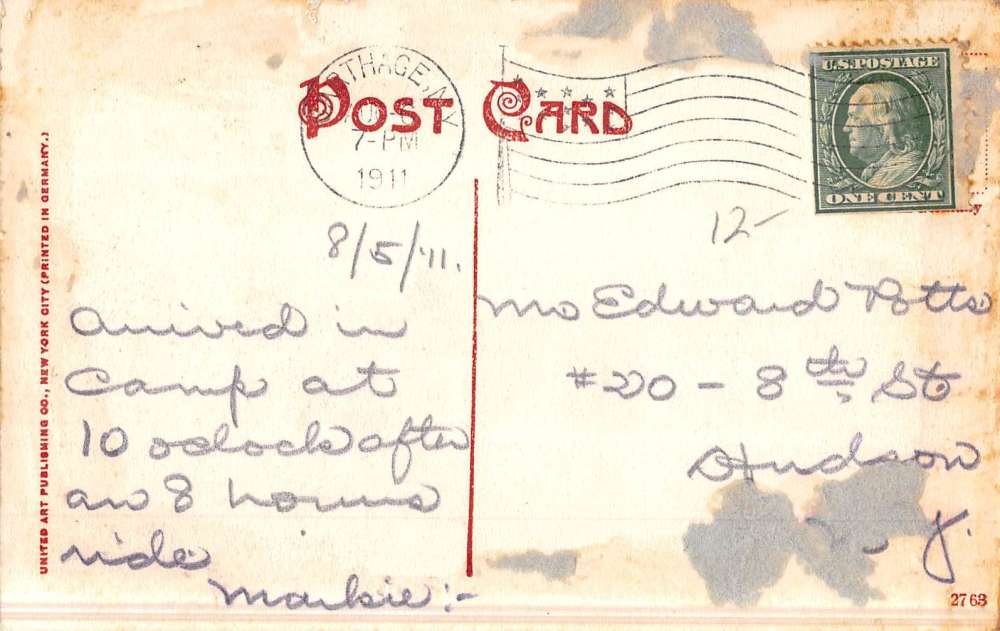 POST CARD
CARTHAGE, N.Y.
7-PM
1911
U.S. POSTAGE
ONE CENT
12-
8/5/11.
Arrived in
Camp at
10 oclock after
an 8 hours
ride
Markie:-
Mrs Edward Potts
#20 - 8th St
Hudson
y.
UNITED ART PUBLISHING CO., NEW YORK CITY (PRINTED IN GERMANY.)
2763